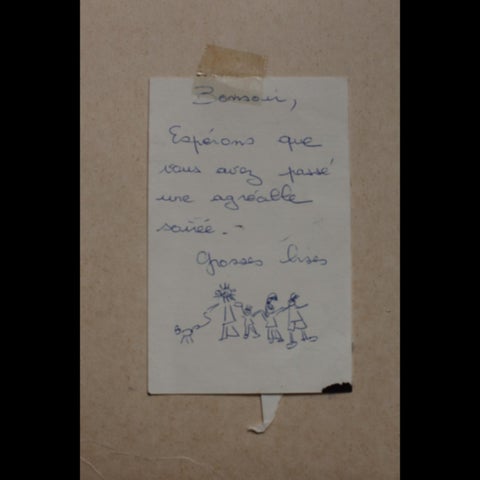 Bonsoir,
Espérons que
vous avez passé
une agréable
soirée. -
Grosses bises